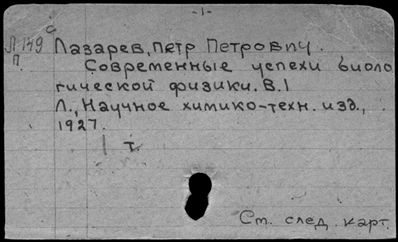 -1-
Л149 Лазарев, Петр Петрович.
П Современные успехи биоло
гической физики. В.1
Л., Научное химико-техн. изд.,
1927.
1 т.
См. след. карт.